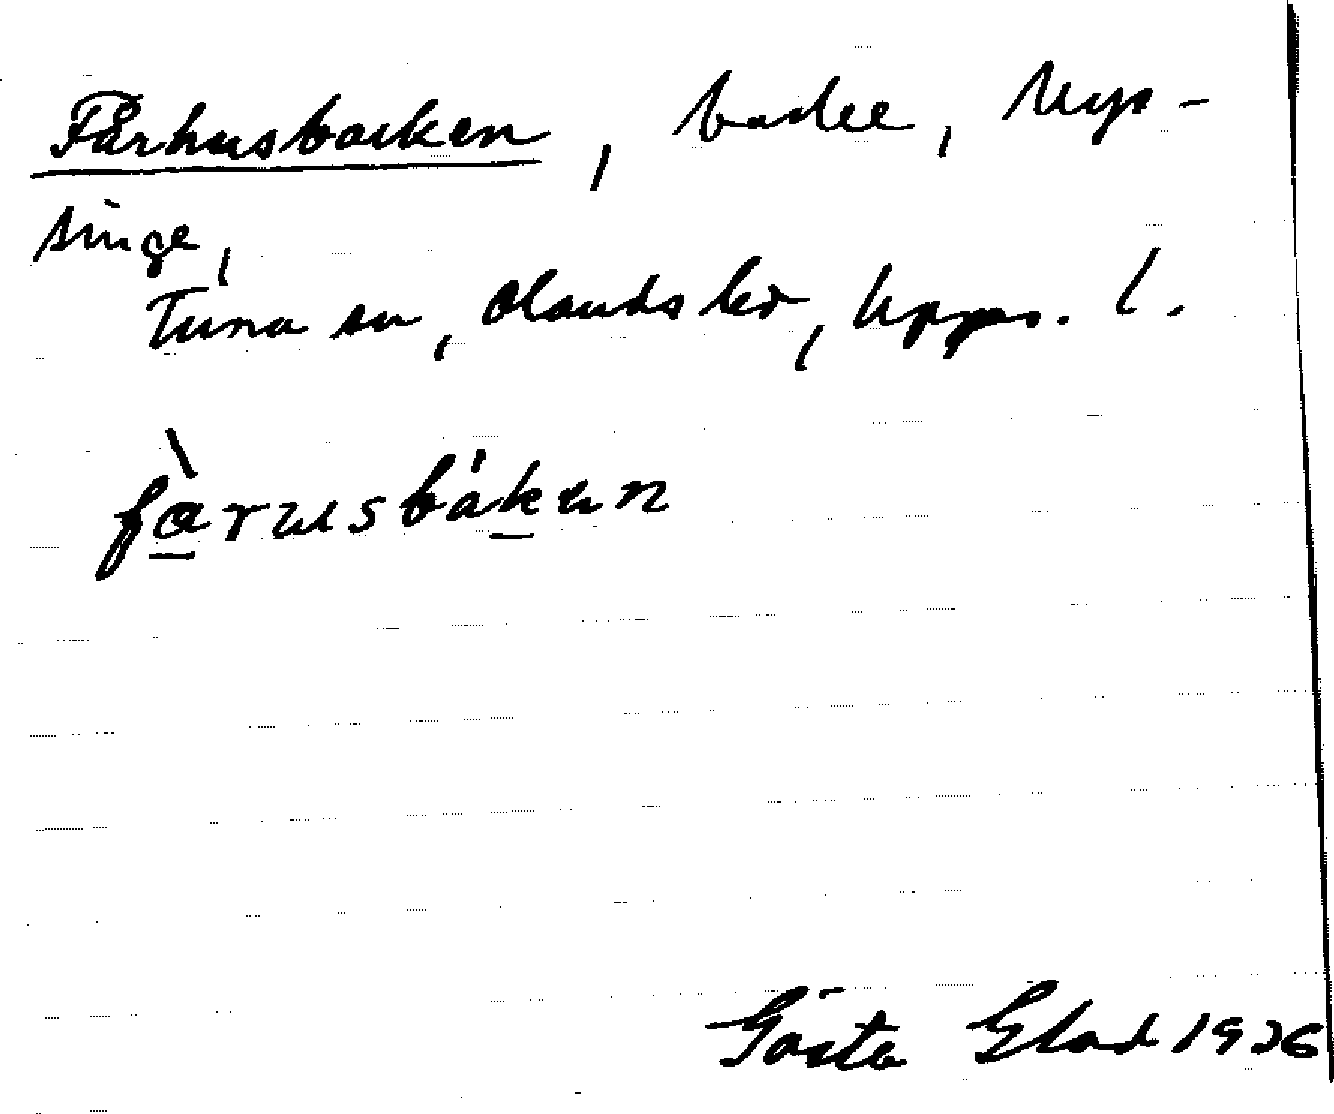 Fårhusbacken, backe, Upp-
singe,
Tuna sn, Olands hd, Upps. l.
fàrusbákan
Gösta Elad 1936